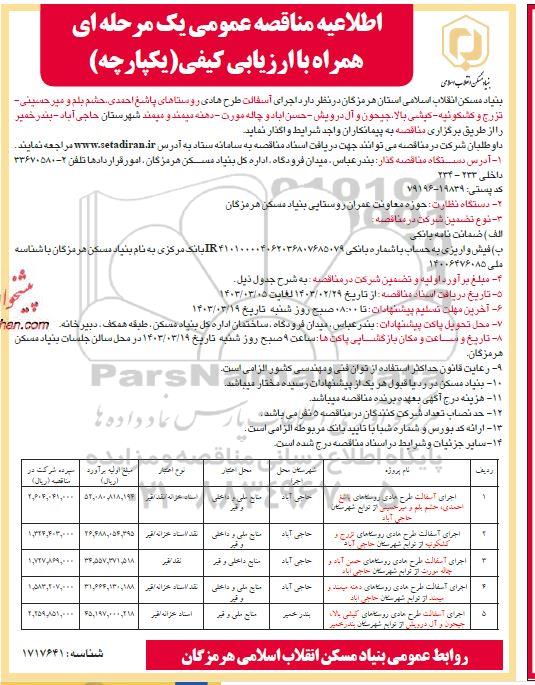 اطلاعیه مناقصه عمومی یک مرحله ای
همراه با ارزیابی کیفی(یکپارچه)
بنیاد مسکن انقلاب اسلامی
بنیاد مسکن انقلاب اسلامی استان هرمزگان در نظر دارد اجرای آسفالت طرح هادی روستاهای پاشغ احمدی، حشم بلم و میرحسینی-
تزرج و کشکوئیه- کیشی بالا، جیحون و آل درویش - حسن اباد و چاله مورت - دهنه میمند و میمند شهرستان حاجی آباد - بندرخمیر
را از طریق برگزاری مناقصه به پیمانکاران واجد شرایط و اگذار نماید.
داوطلبان شرکت در مناقصه می توانند جهت دریافت اسناد مناقصه به سامانه ستاد به آدرس www.setadiran.ir مراجعه نمایند.
۱- آدرس دستگاه مناقصه گذار: بندرعباس، میدان فرودگاه، اداره کل بنیاد مسکن هرمزگان، امور قراردادها تلفن ۲-۳۳۶۷۰۵۸۰
داخلی ۲۳۳ - ۲۳۴
کد پستی: ۱۹۸۳۹-۷۹۱۹۶
۲- دستگاه نظارت: حوزه معاونت عمران روستایی بنیاد مسکن هرمزگان
۳- نوع تضمین شرکت در مناقصه:
الف) ضمانت نامه بانکی
ب) فیش واریزی به حساب با شماره بانکی IR۴۱۰۱۰۰۰۰۴۰۶۲۰۳۶۸۰۷۶۸۵۰۷۹ بانک مرکزی به نام بنیاد مسکن هرمزگان با شناسه
ملی ۱۴۰۰۶۴۷۶۰۸۵
۴- مبلغ برآورد اولیه و تضمین شرکت در مناقصه: به شرح جدول ذیل.
۵- تاریخ دریافت اسناد مناقصه: از تاریخ ۱۴۰۳/۰۲/۲۹ لغایت ۱۴۰۳/۰۳/۰۵
۶- آخرین مهلت تسلیم پیشنهادات: تا ۰۸:۰۰ صبح روز شنبه تاریخ ۱۴۰۳/۰۳/۱۹
۷- محل تحویل پاکت پیشنهادات: بندرعباس، میدان فرودگاه، ساختمان اداره کل بنیاد مسکن، طبقه همکف، دبیرخانه.
۸- تاریخ و ساعت و مکان بازگشایی پاکت ها: ساعت ۹ صبح روز شنبه تاریخ ۱۴۰۳/۰۳/۱۹ در محل سالن جلسات بنیاد مسکن
هرمزگان.
۹- رعایت قانون حداکثر استفاده از توان فنی و مهندسی کشور الزامی است.
۱۰- بنیاد مسکن در رد یا قبول هر یک از پیشنهادات رسیده مختار میباشد.
۱۱- هزینه درج آگهی بعهده برنده مناقصه میباشد.
۱۲- حد نصاب تعداد شرکت کنندگان در مناقصه ۵ نفر می باشد.
۱۳- ارائه کد بورس و شماره شبا با تایید بانک مربوطه الزامی است.
۱۴- سایر جزئیات و شرایط در اسناد مناقصه درج شده است.
ردیف نام پروژه شهرستان محل اجرا محل اعتبار نوع اعتبار مبلغ اولیه برآورد (ریال) سپرده شرکت در مناقصه (ریال)
۱ اجرای آسفالت طرح هادی روستاهای پاشغ احمدی، حشم بلم و میرحسینی از توابع شهرستان حاجی آباد حاجی آباد منابع ملی و داخلی و قیر اسناد خزانه/نقد/قیر ۵۲,۰۸۰,۸۱۸,۱۹۴ ۲,۶۰۴,۰۴۱,۰۰۰
۲ اجرای آسفالت طرح هادی روستاهای تزرج و کشکوئیه از توابع شهرستان حاجی آباد حاجی آباد منابع ملی و داخلی و قیر نقد/اسناد خزانه/قیر ۲۶,۴۸۸,۰۵۴,۳۹۵ ۱,۳۲۴,۴۰۳,۰۰۰
۳ اجرای آسفالت طرح هادی روستاهای حسن آباد و چاله مورت از توابع شهرستان حاجی اباد حاجی آباد منابع داخلی و قیر نقد/قیر ۳۴,۵۵۷,۳۷۱,۵۱۸ ۱,۷۲۷,۸۶۹,۰۰۰
۴ اجرای آسفالت طرح هادی روستاهای دهنه میمند و میمند از توابع شهرستان حاجی اباد حاجی آباد منابع ملی و داخلی و قیر نقد/اسناد خزانه/قیر ۳۱,۶۶۴,۱۳۰,۱۸۸ ۱,۵۸۳,۲۰۷,۰۰۰
۵ اجرای آسفالت طرح هادی روستاهای کیشی بالا، جیحون و آل درویش از توابع شهرستان بندرخمیر بندر خمیر منابع ملی و قیر اسناد خزانه/قیر ۴۵,۱۹۷,۰۰۰,۲۱۸ ۲,۲۵۹,۸۵۱,۰۰۰
روابط عمومی بنیاد مسکن انقلاب اسلامی هرمزگان
شناسه: ۱۷۱۷۶۴۱
ParsNamadData
پایگاه اطلاع رسانی مناقصه و مزایده